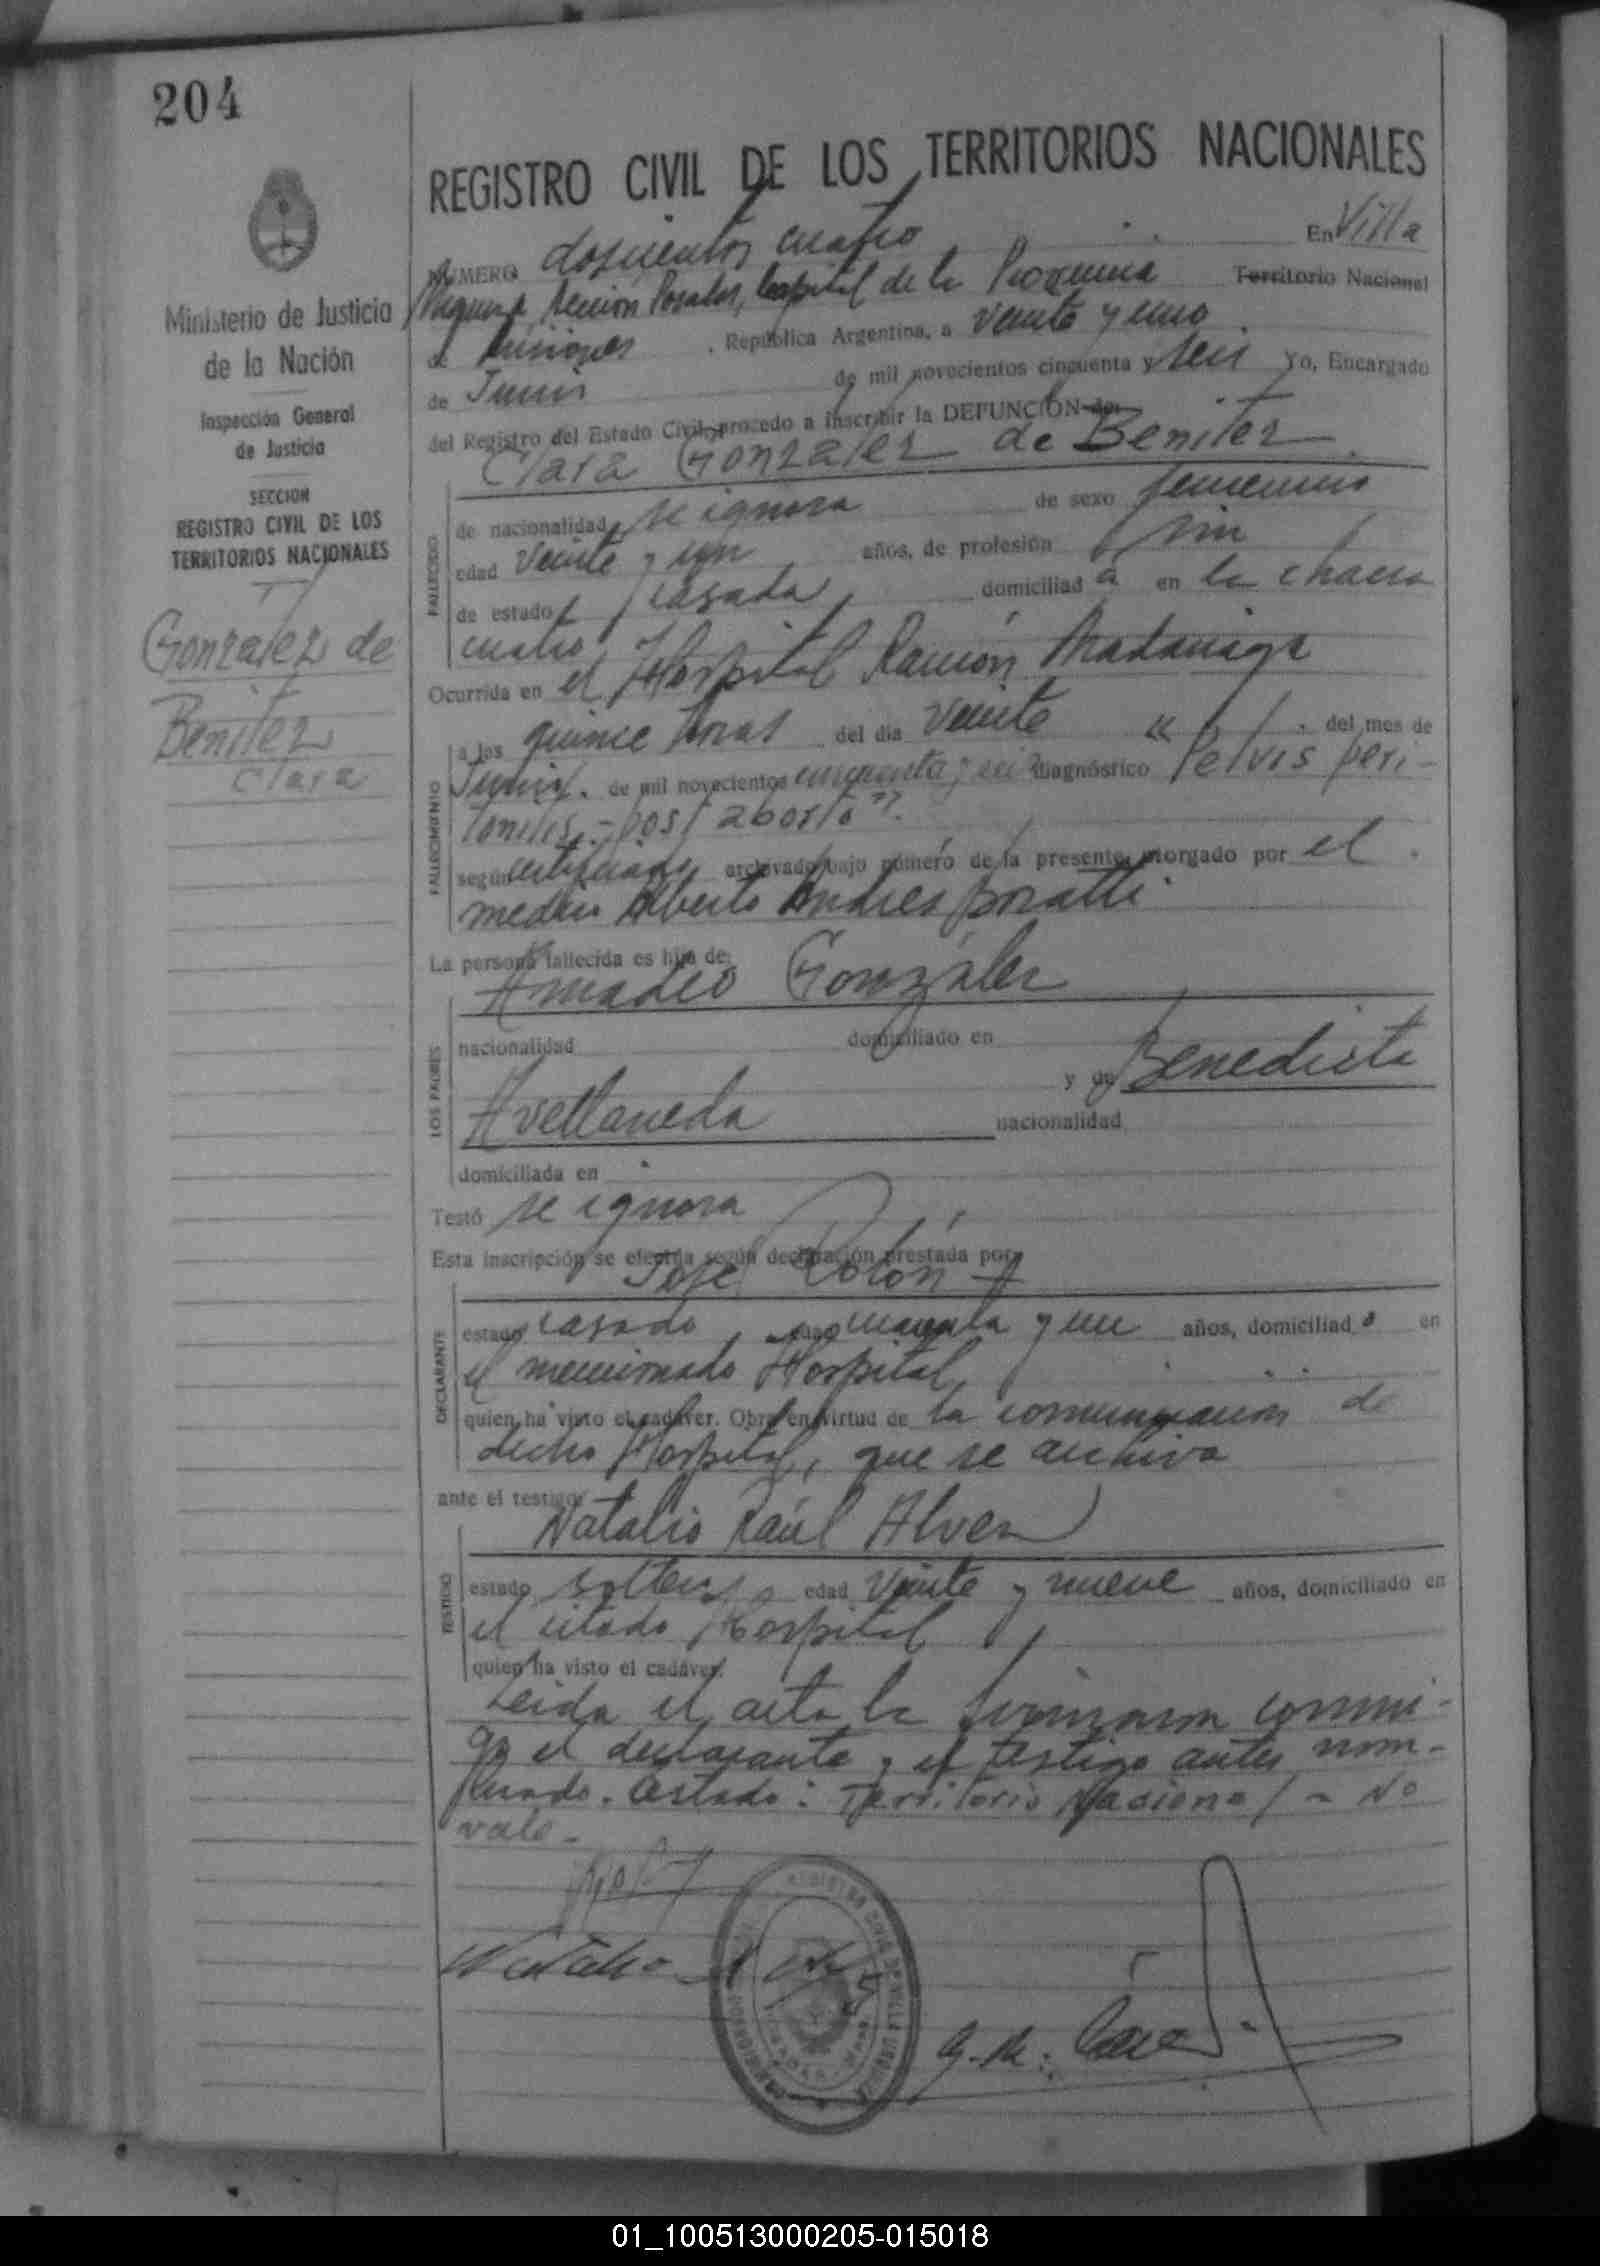 204
REGISTRO CIVIL DE LOS TERRITORIOS NACIONALES
Ministerio de Justicia
de la Nación
Inspección General
de Justicia
SECCION
REGISTRO CIVIL DE LOS
TERRITORIOS NACIONALES
Gonzalez de
Benitez
Clara
NUMERO doscientos cuatro En Villa
Sección Posadas, Capital de la Provincia Territorio Nacional
de Misiones, República Argentina, a veinte y uno
de Junio de mil novecientos cincuenta y seis Yo, Encargado
del Registro del Estado Civil, procedo a inscribir la DEFUNCION de:
Clara Gonzalez de Benitez
FALLECIDO
de nacionalidad se ignora de sexo femenino
edad veinte y un años, de profesión sin
de estado casada domiciliada en la chacra
cuatro
Ocurrida en el Hospital Ramón Madariaga
FALLECIMIENTO
a las quince horas del dia veinte " del mes de
Junio de mil novecientos cincuenta y seis diagnóstico Pelvis peri-
tonitis - post aborto".
según certificado archivado bajo número de la presente, otorgado por el
medico Alberto Andres
La persona fallecida es hija de:
Amadeo González
LOS PADRES
nacionalidad domiciliado en
y de Benedicta
Avellaneda nacionalidad
domiciliada en
Testó se ignora
Esta inscripción se efectúa según declaración prestada por:
José Colón
DECLARANTE
estado casado edad cuarenta y un años, domiciliado en
el mencionado Hospital
quien ha visto el cadáver. Obra en virtud de la comunicación de
dicho Hospital, que se archiva
ante el testigo:
Natalio Raúl Alvez
TESTIGO
estado soltero edad veinte y nueve años, domiciliado en
el citado Hospital
quien ha visto el cadáver.
Leida el acta la firmaron conmi-
go el declarante y el testigo antes nom-
brado. Testado: Territorio Nacional - No
vale -
01_100513000205-015018